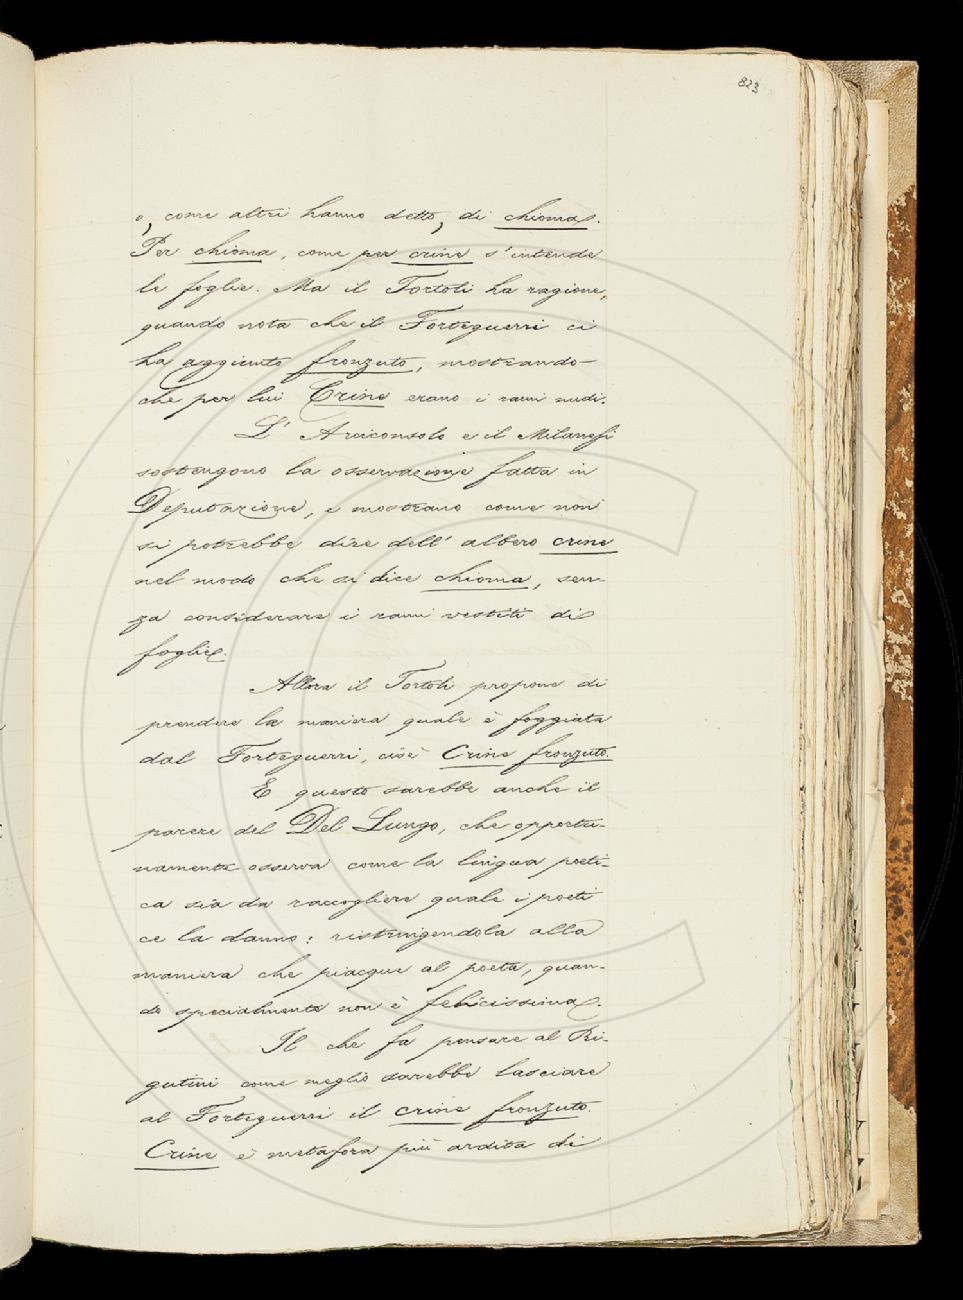 823
o, come altri hanno detto, di chioma.
Per chioma, come per crine s'intende
le foglie. Ma il Tortoli ha ragione,
quando nota che il Forteguerri ci
ha aggiunto fronzuto, mostrando
che per lui Crine erano i rami nudi.
L' Arciconsolo e il Milanesi
sostengono la osservazione fatta in
Deputazione, e mostrano come non
si potrebbe dire dell' albero crine
nel modo che si dice chioma, sen-
za considerare i rami vestiti di
foglie.
Allora il Tortoli propone di
prendere la maniera quale è foggiata
dal Forteguerri, cioè Crine fronzuto.
E questo sarebbe anche il
parere del Del Lungo, che opportu-
namente osserva come la lingua poeti-
ca sia da raccogliere quale i poeti
ce la danno: ristringendola alla
maniera che piacque al poeta, quan-
do specialmente non è felicissima.
Il che fa pensare al Ri-
gutini come meglio sarebbe lasciare
al Forteguerri il crine fronzuto.
Crine è metafora più ardita di